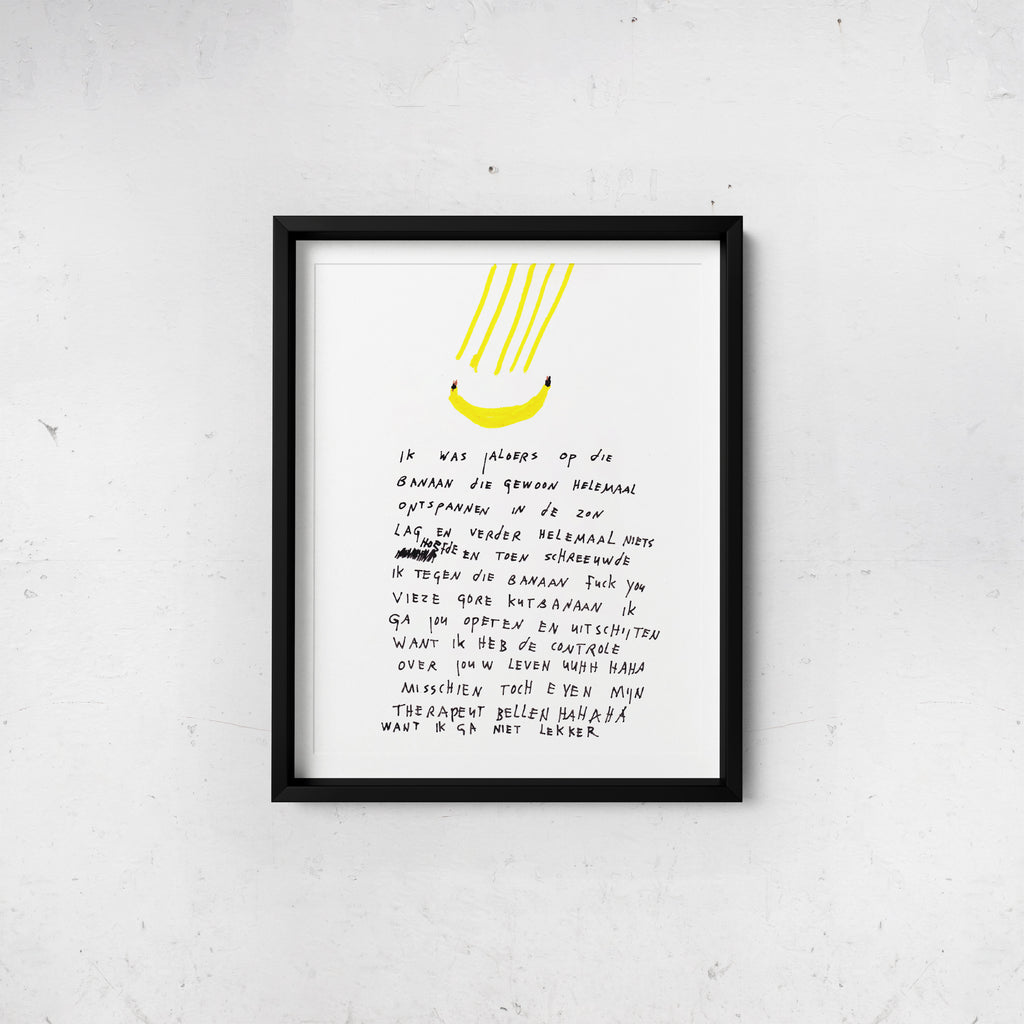 Ik WAS jALOERS op die
BANAAN die GEWOON HELEMAAL
ONTSPANNEN IN dE ZON
LAG EN VERdER HELEMAAL NIETS
HOEfdE EN TOEN SCHREEUWDE
IK TEGEN dIE BANAAN fuck you
VIEZE GORE KUTBANAAN IK
GA jOU OPETEN EN UITSCHIjTEN
WANT IK HEB dE CONTROLE
OVER jOUW LEVEN UUHH HAHA
MISSCHIEN TOCH EVEN MIjN
THERAPEUT BELLEN HAHAHA
WANT IK GA NIET LEKKER